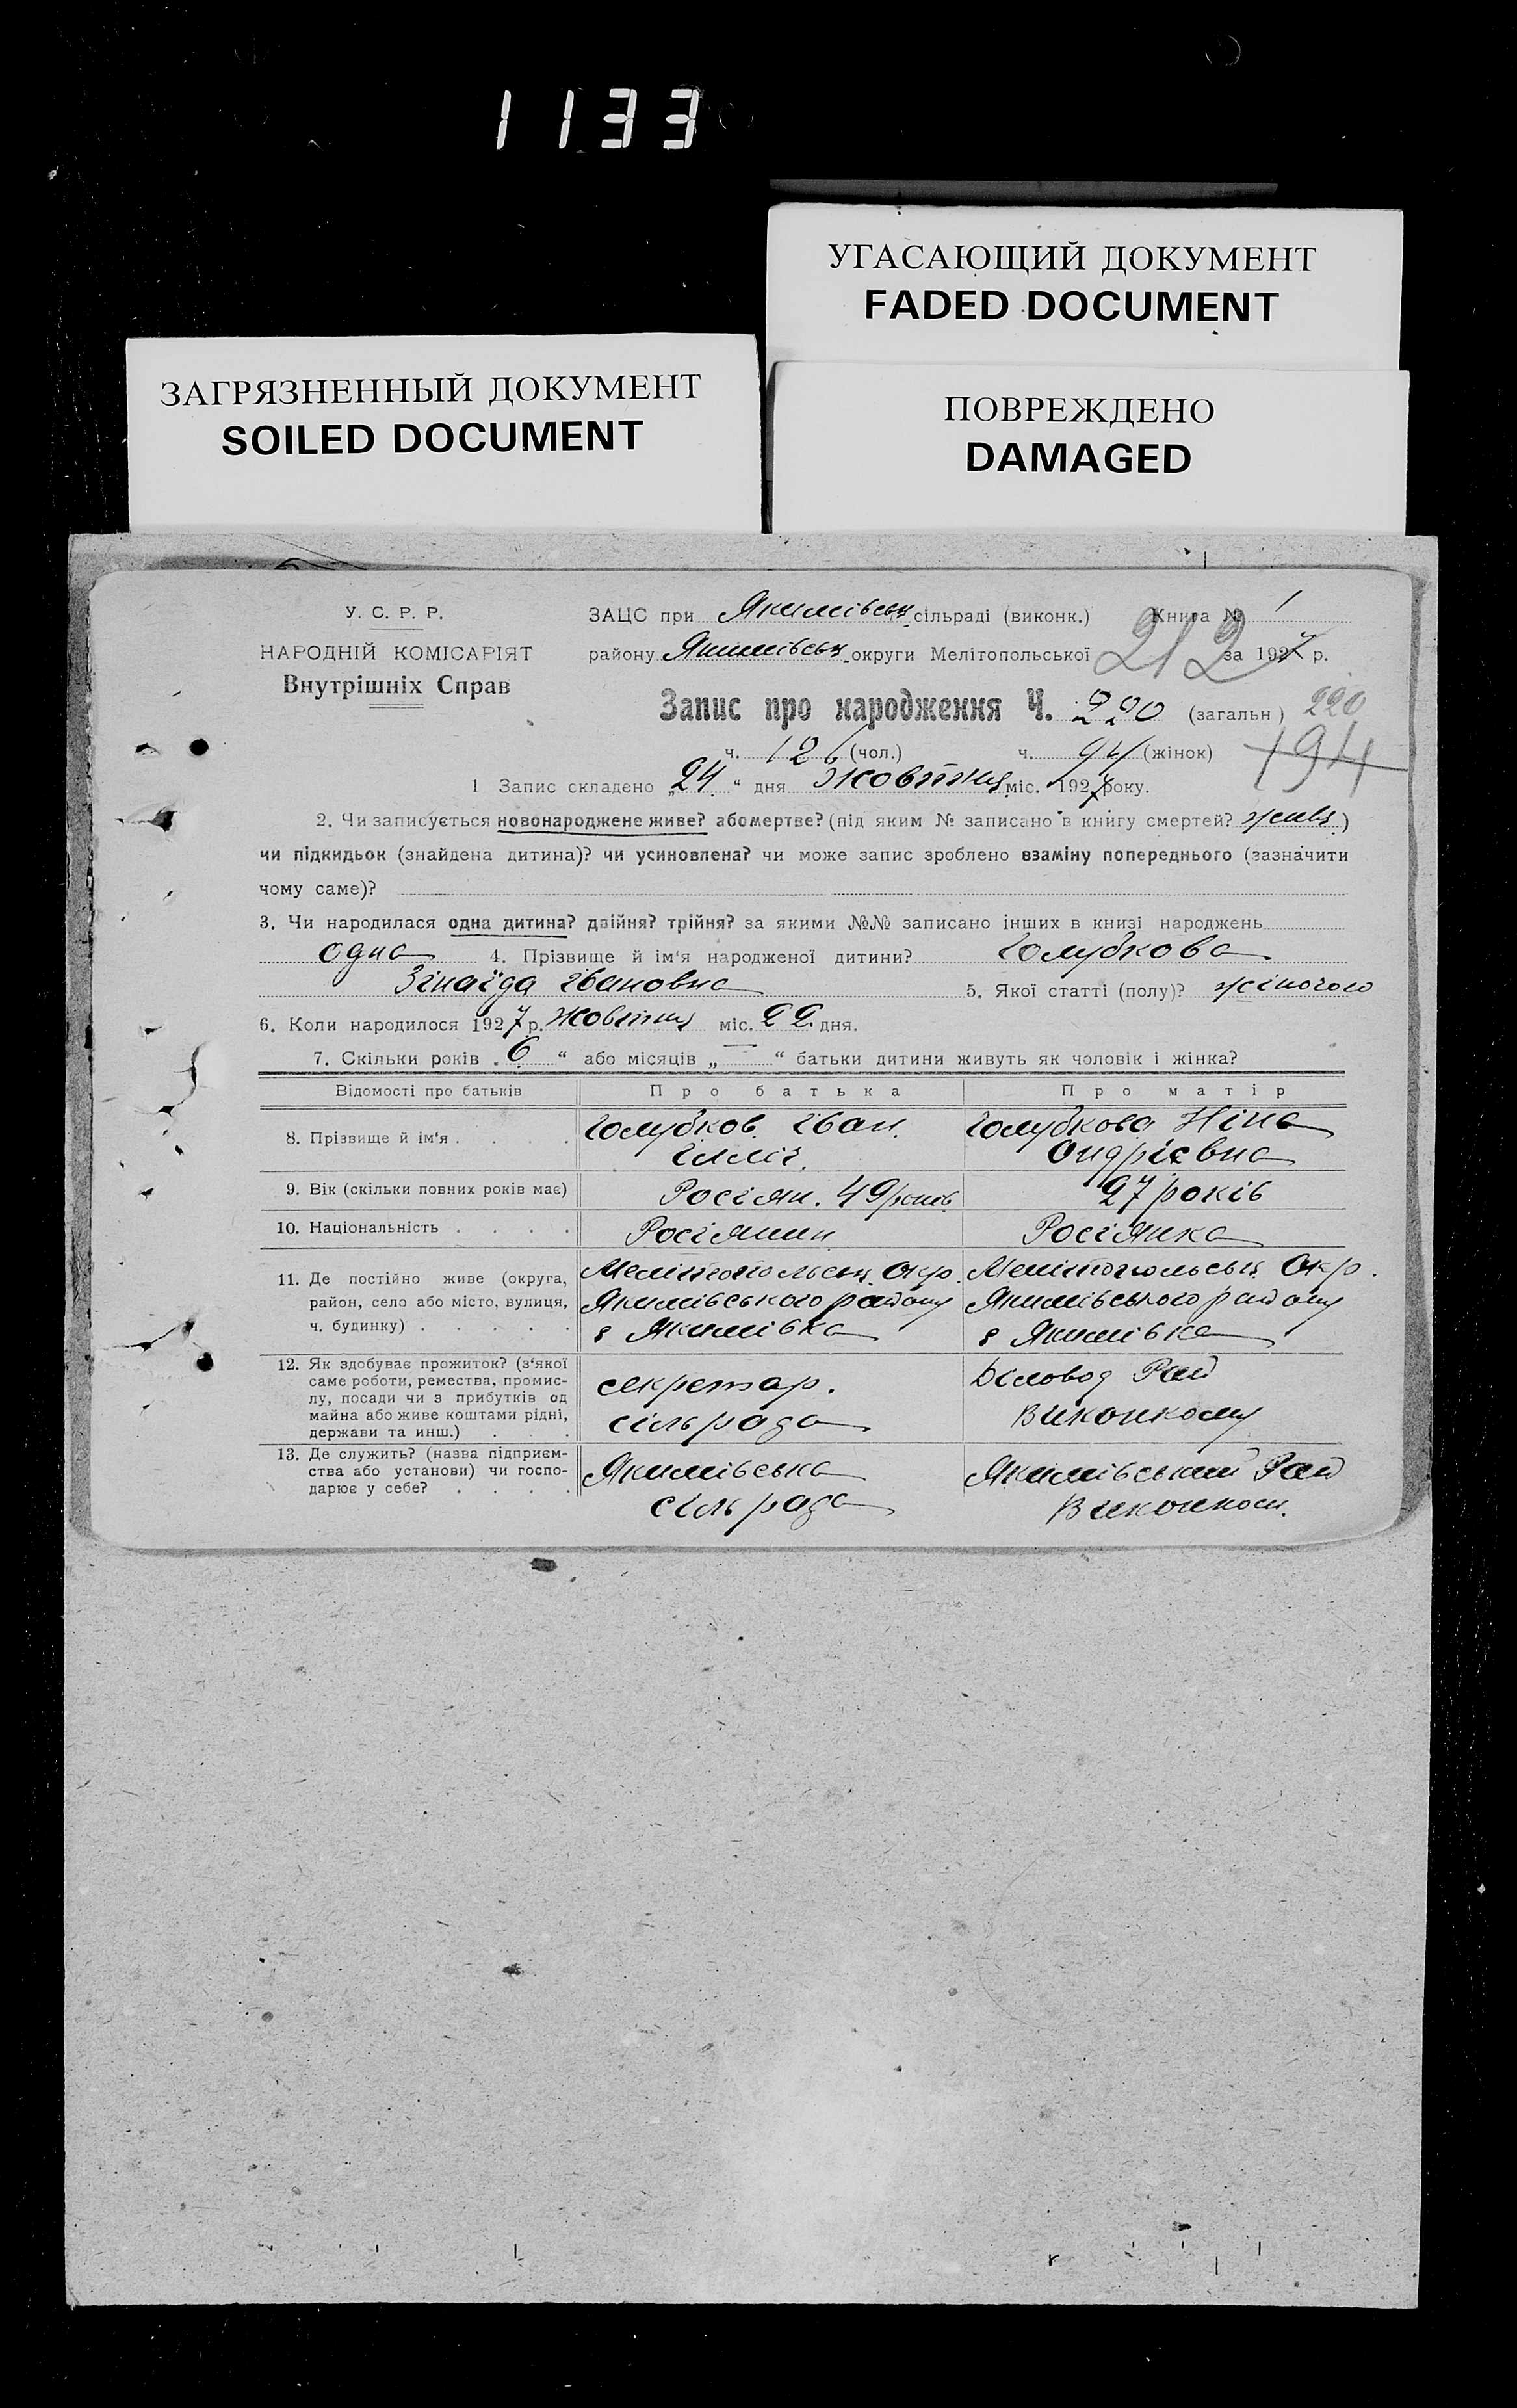 1133
УГАСАЮЩИЙ ДОКУМЕНТ
FADED DOCUMENT
ЗАГРЯЗНЕННЫЙ ДОКУМЕНТ
SOILED DOCUMENT
ПОВРЕЖДЕНО
DAMAGED
У. С. Р. Р.
НАРОДНІЙ КОМІСАРІЯТ
Внутрішніх Справ
ЗАЦС при Якимівськ сільраді (виконк.) Книга № 1
району Якимівськ округи Мелітопольської 212 за 1927 р.
Запис про народження Ч. 220 (загальн) 220
ч. 126 (чол.) ч. 94 (жінок) 194
1 Запис складено „24" дня Жовтня міс. 1927 року.
2. Чи записується новонароджене живе? або мертве? (під яким № записано в книгу смертей? живе)
чи підкидьок (знайдена дитина)? чи усиновлена? чи може запис зроблено взаміну попереднього (зазначити
чому саме)?
3. Чи народилася одна дитина? двійня? трійня? за якими №№ записано інших в книзі народжень
одна 4. Прізвище й ім'я народженої дитини? Голубкова
Зінаїда Івановна 5. Якої статті (полу)? жіночого
6. Коли народилося 1927 р. Жовтня міс. 22 дня.
7. Скільки років „6" або місяців „—" батьки дитини живуть як чоловік і жінка?
Відомості про батьків Про батька Про матір
8. Прізвище й ім'я . . . . Голубков Іван Ілліч. Голубкова Ніна Ондрієвна
9. Вік (скільки повних років має) Росіян. 49 років 27 років
10. Національність . . . . Росіянин Росіянка
11. Де постійно живе (округа, Мелітопольськ Окр. Мелітопольськ Окр.
район, село або місто, вулиця, Якимівського району Якимівського району
ч. будинку) . . . . . Якимівка Якимівка
12. Як здобуває прожиток? (з'якої
саме роботи, ремества, промис- секретар. Діловод Рай
лу, посади чи з прибутків од
майна або живе коштами рідні, сільрада Виконкому
держави та инш.) . . .
13. Де служить? (назва підприєм- Якимівська Якимівський Рай
ства або установи) чи госпо-
дарює у себе? . . . . сільрада Виконком.